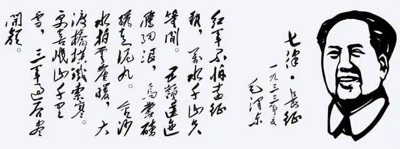 七律·长征
毛泽东
红军不怕远征
难，万水千山只
等闲。五岭逶迤
腾细浪，乌蒙磅
礴走泥丸。金沙
水拍云崖暖，大
渡桥横铁索寒。
更喜岷山千里
雪，三军过后尽
开颜。